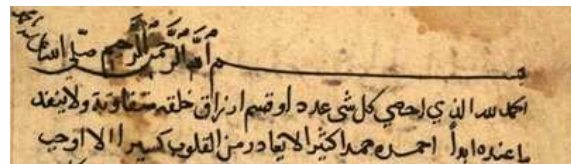 بسم الله الرحمن الرحيم صلى الله
الحمد لله الذي احصي كل شى عددا وقسم ارزاق خلقه متفاوتة ولا ينفد
ما عنده ابدا احمده حمدا كثيرا لا يغادر من القلوب كسيرا الا اوجب